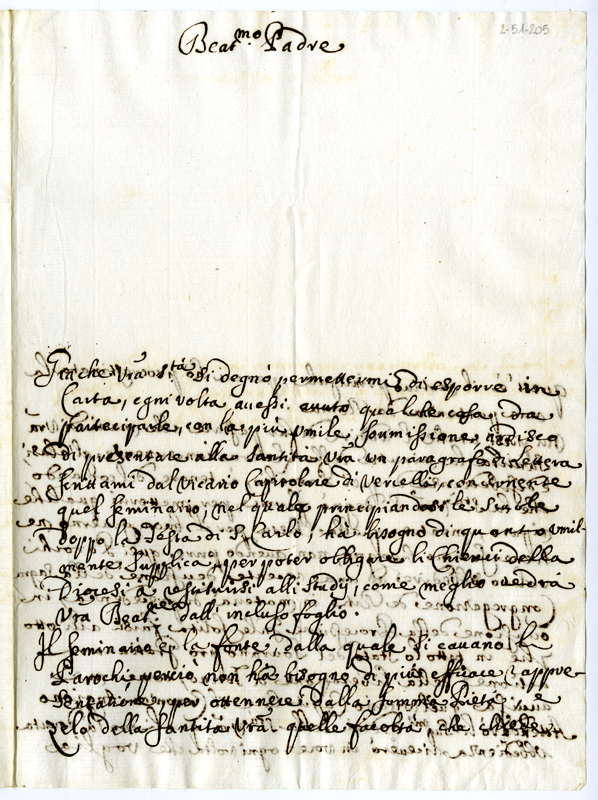 2-51-205
Beat.mo Padre
Giache Vra S.tà si degnò permettermi di esporre in
Carta, ogni volta avessi avuto qualche cosa da
parteciparle, con la più umile soumissione ardisco
di presentare alla Santità Vra un paragrafo di lettera
scrittami dal Vicario Capitolare di Vercelli, concernente
quel Seminario, nel quale principiandosi le Scuole
doppo la Festa di S. Carlo, hà bisogno di quanto umil-
mente supplica, per poter obligare li Chierici della
Diocesi à restituirsi alli Studij, come meglio vedrà
Vra Beat.ne dall' incluso foglio.
Il Seminario è la fonte, dalla quale si cavano li
Parochi perciò non hà bisogno di più efficace rappre-
sentatione per ottennere dalla somma Pietà, e
zelo della Santità Vra quelle facoltà, che chiede